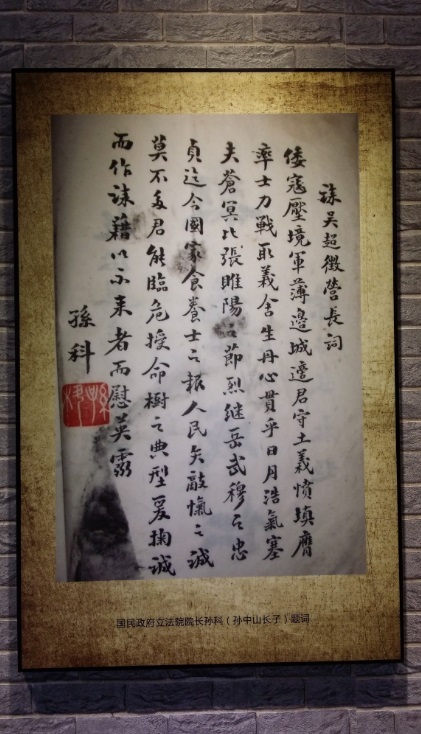 誄吳超徵營長詞
倭寇壓境軍薄邊城君守土義憤填膺
率士力戰取義舍生丹心貫乎日月浩氣塞
夫蒼冥比張睢陽之節烈繼岳武穆之忠
貞迄今國家食養士之報人民矢敵愾之誠
莫不多君能臨危授命樹之典型爰掬誠
而作誄藉以示来者而慰英靈
孫科
国民政府立法院院长孙科（孙中山长子）题词